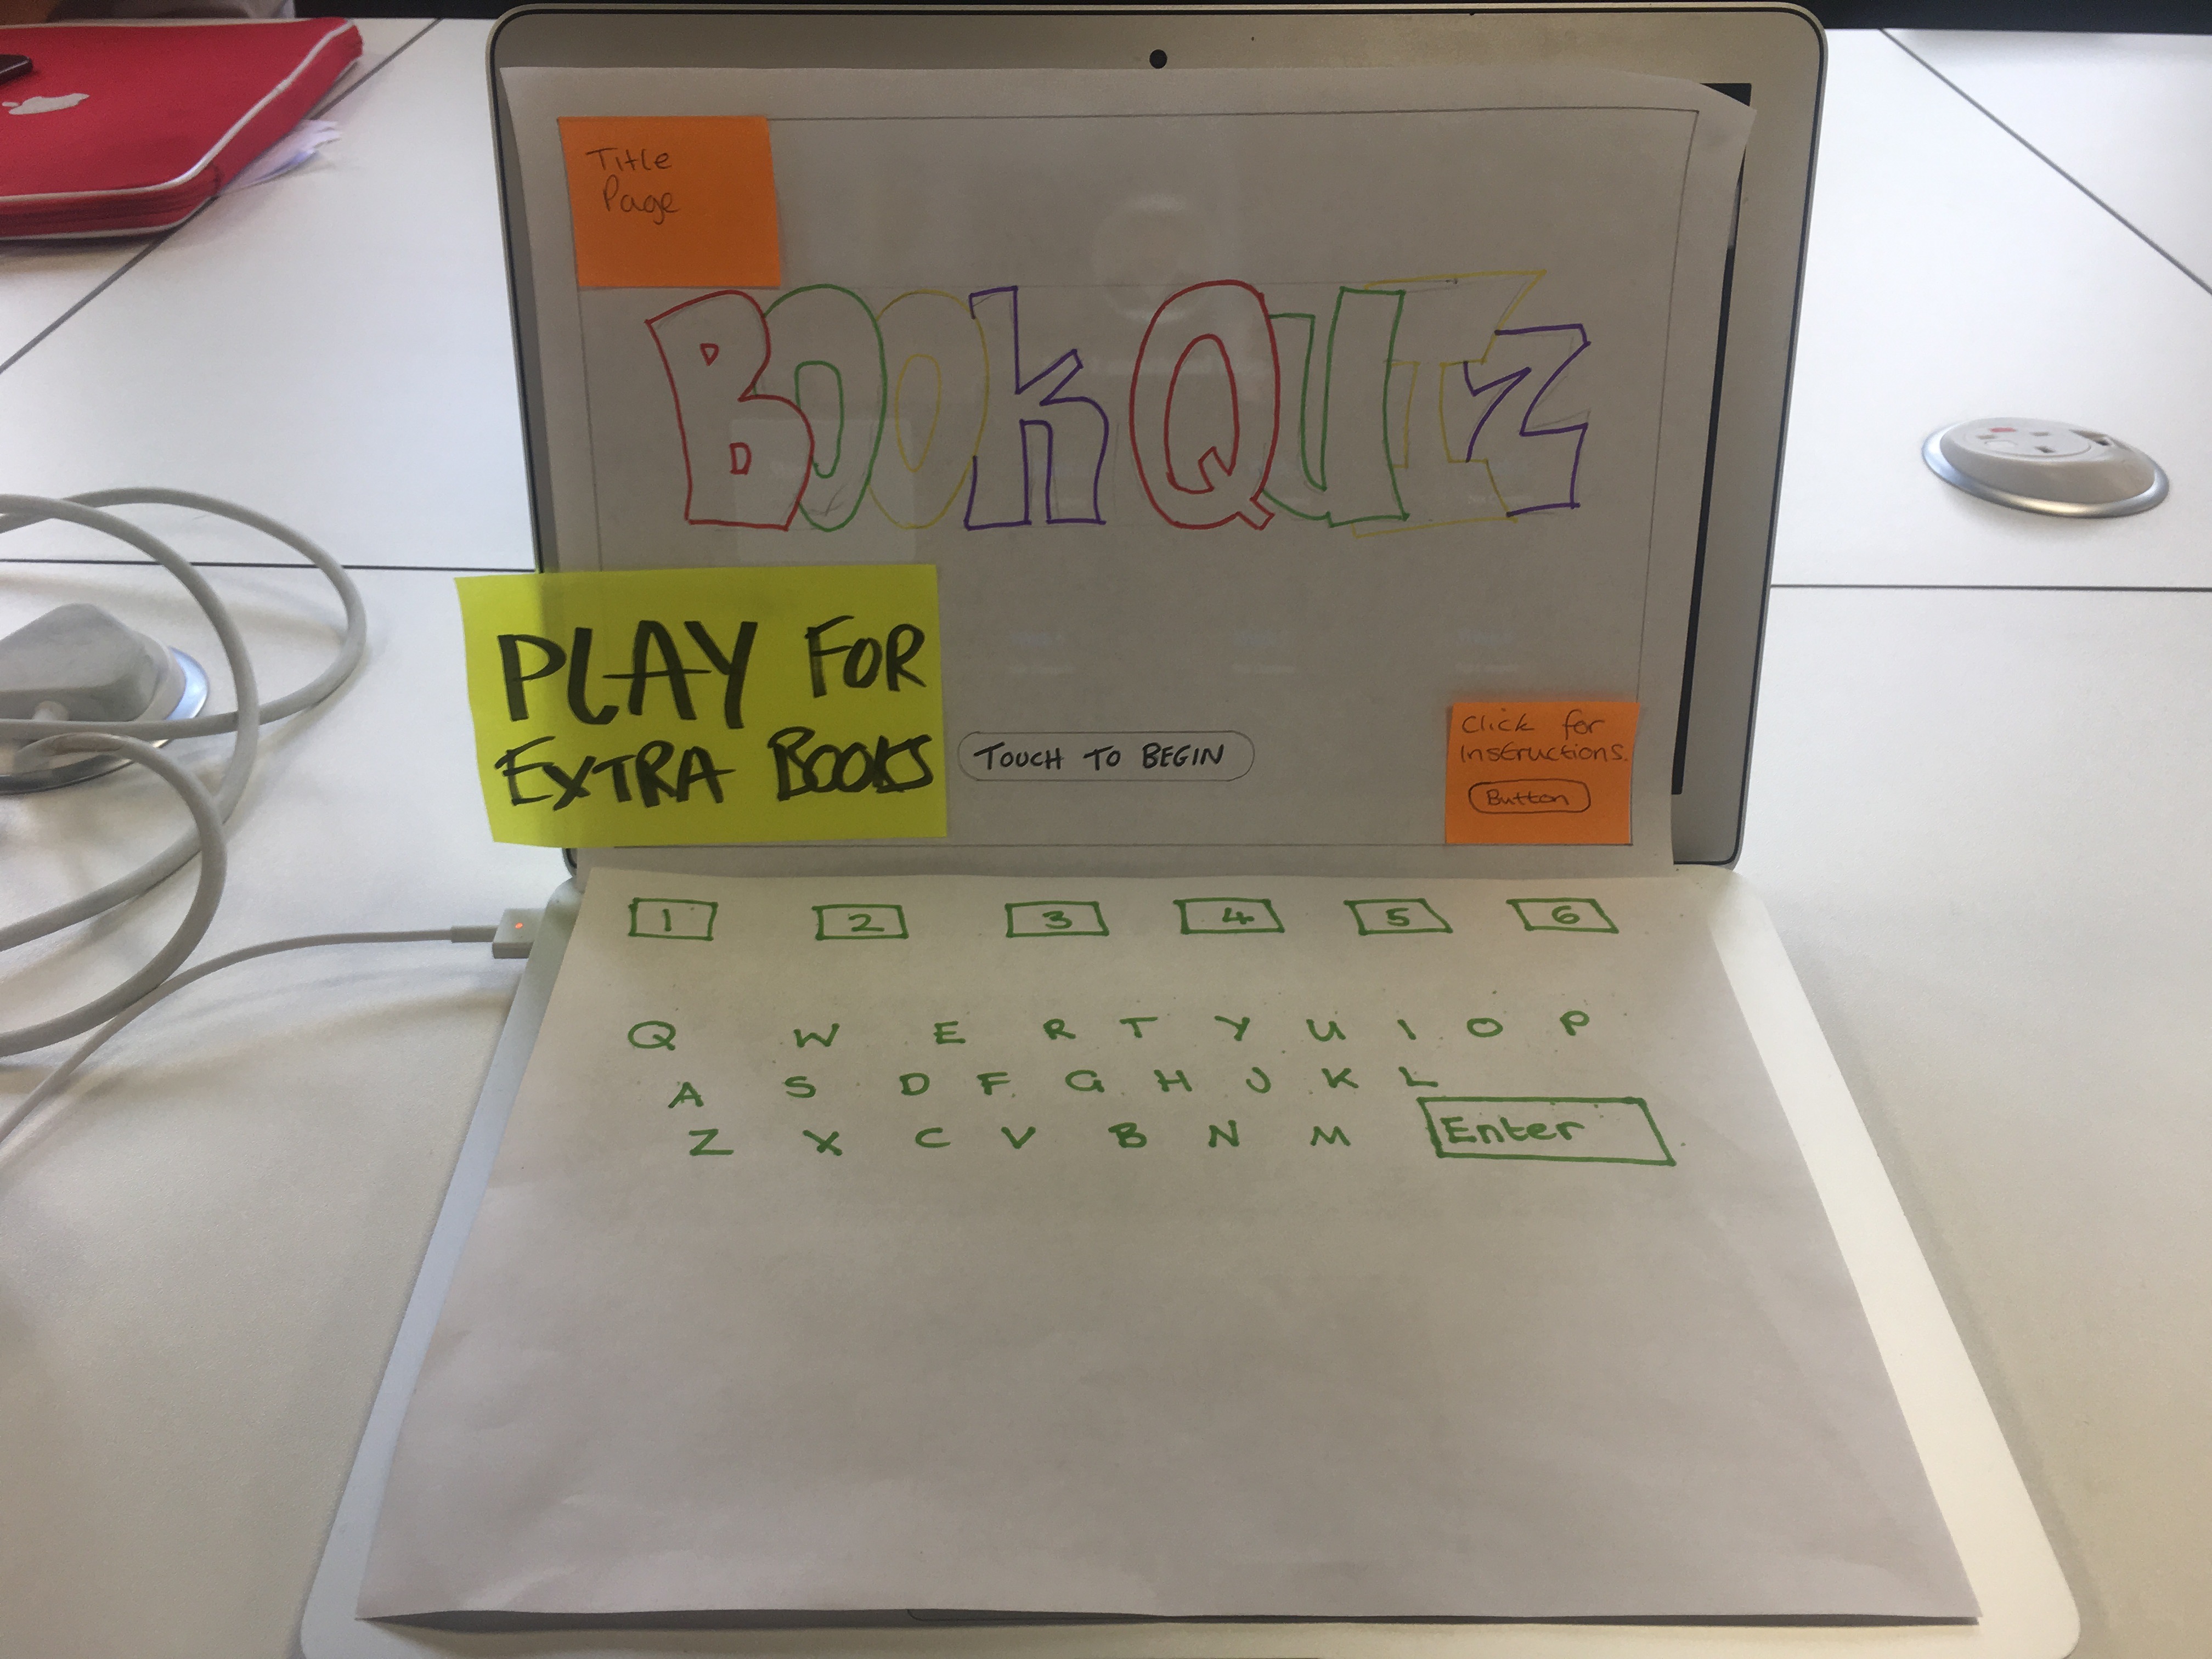 Title
Page
BOOK QUIZ
PLAY FOR
EXTRA BOOKS
TOUCH TO BEGIN
Click for
Instructions.
Button
1 2 3 4 5 6
Q W E R T Y U I O P
A S D F G H J K L
Z X C V B N M Enter